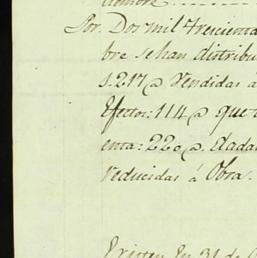 Por. Dos mil Trescienta
bre se han distribu
s. 217 @ Vendidas á
Efectos: 114 @ que
enta: 220 @ dadas
reducidas á Obra.
Existen En 31 de